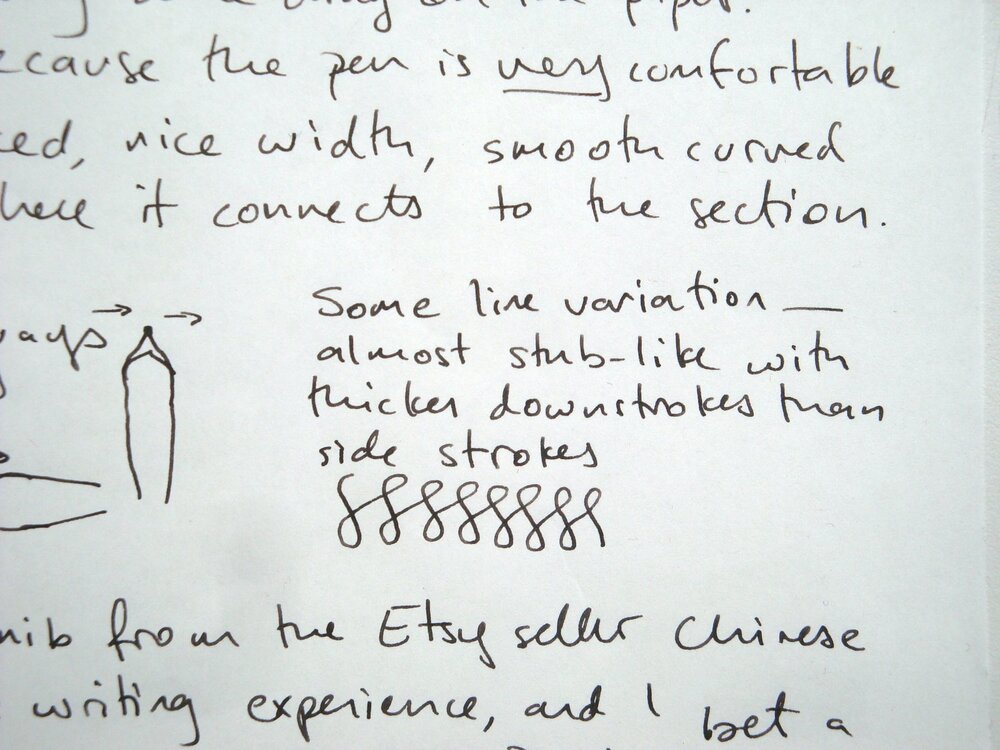 because the pen is very comfortable
ed, nice width, smooth curved
here it connects to the section.
ays → →
Some line variation —
almost stub-like with
thicker downstrokes than
side strokes
nib from the Etsy seller Chinese
writing experience, and I bet a